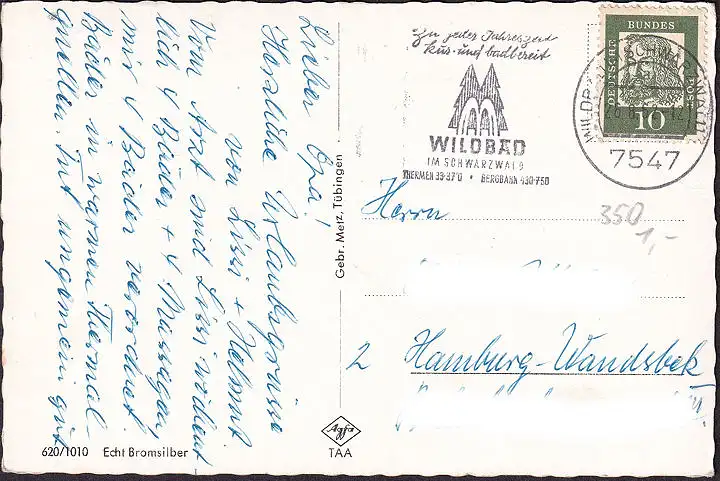 Lieber Opa!
Herzliche Urlaubsgrüsse
von Lissi + Helmut
Vom Arzt sind Lissi wöchent-
lich 4 Bäder + 4 Massagen,
mir 4 Bäder verordnet.
Baden in warmen Thermal-
quellen. Tut ungemein gut
620/1010 Echt Bromsilber
Gebr. Metz, Tübingen
Agfa
TAA
zu jeder Jahreszeit
kur- und badbereit
WILDBAD
IM SCHWARZWALD
THERMEN 33-37°C • BERGBAHN 430-750
DEUTSCHE
BUNDES
POST
10
7547
350
1,-
Herrn
2 Hamburg-Wandsbek